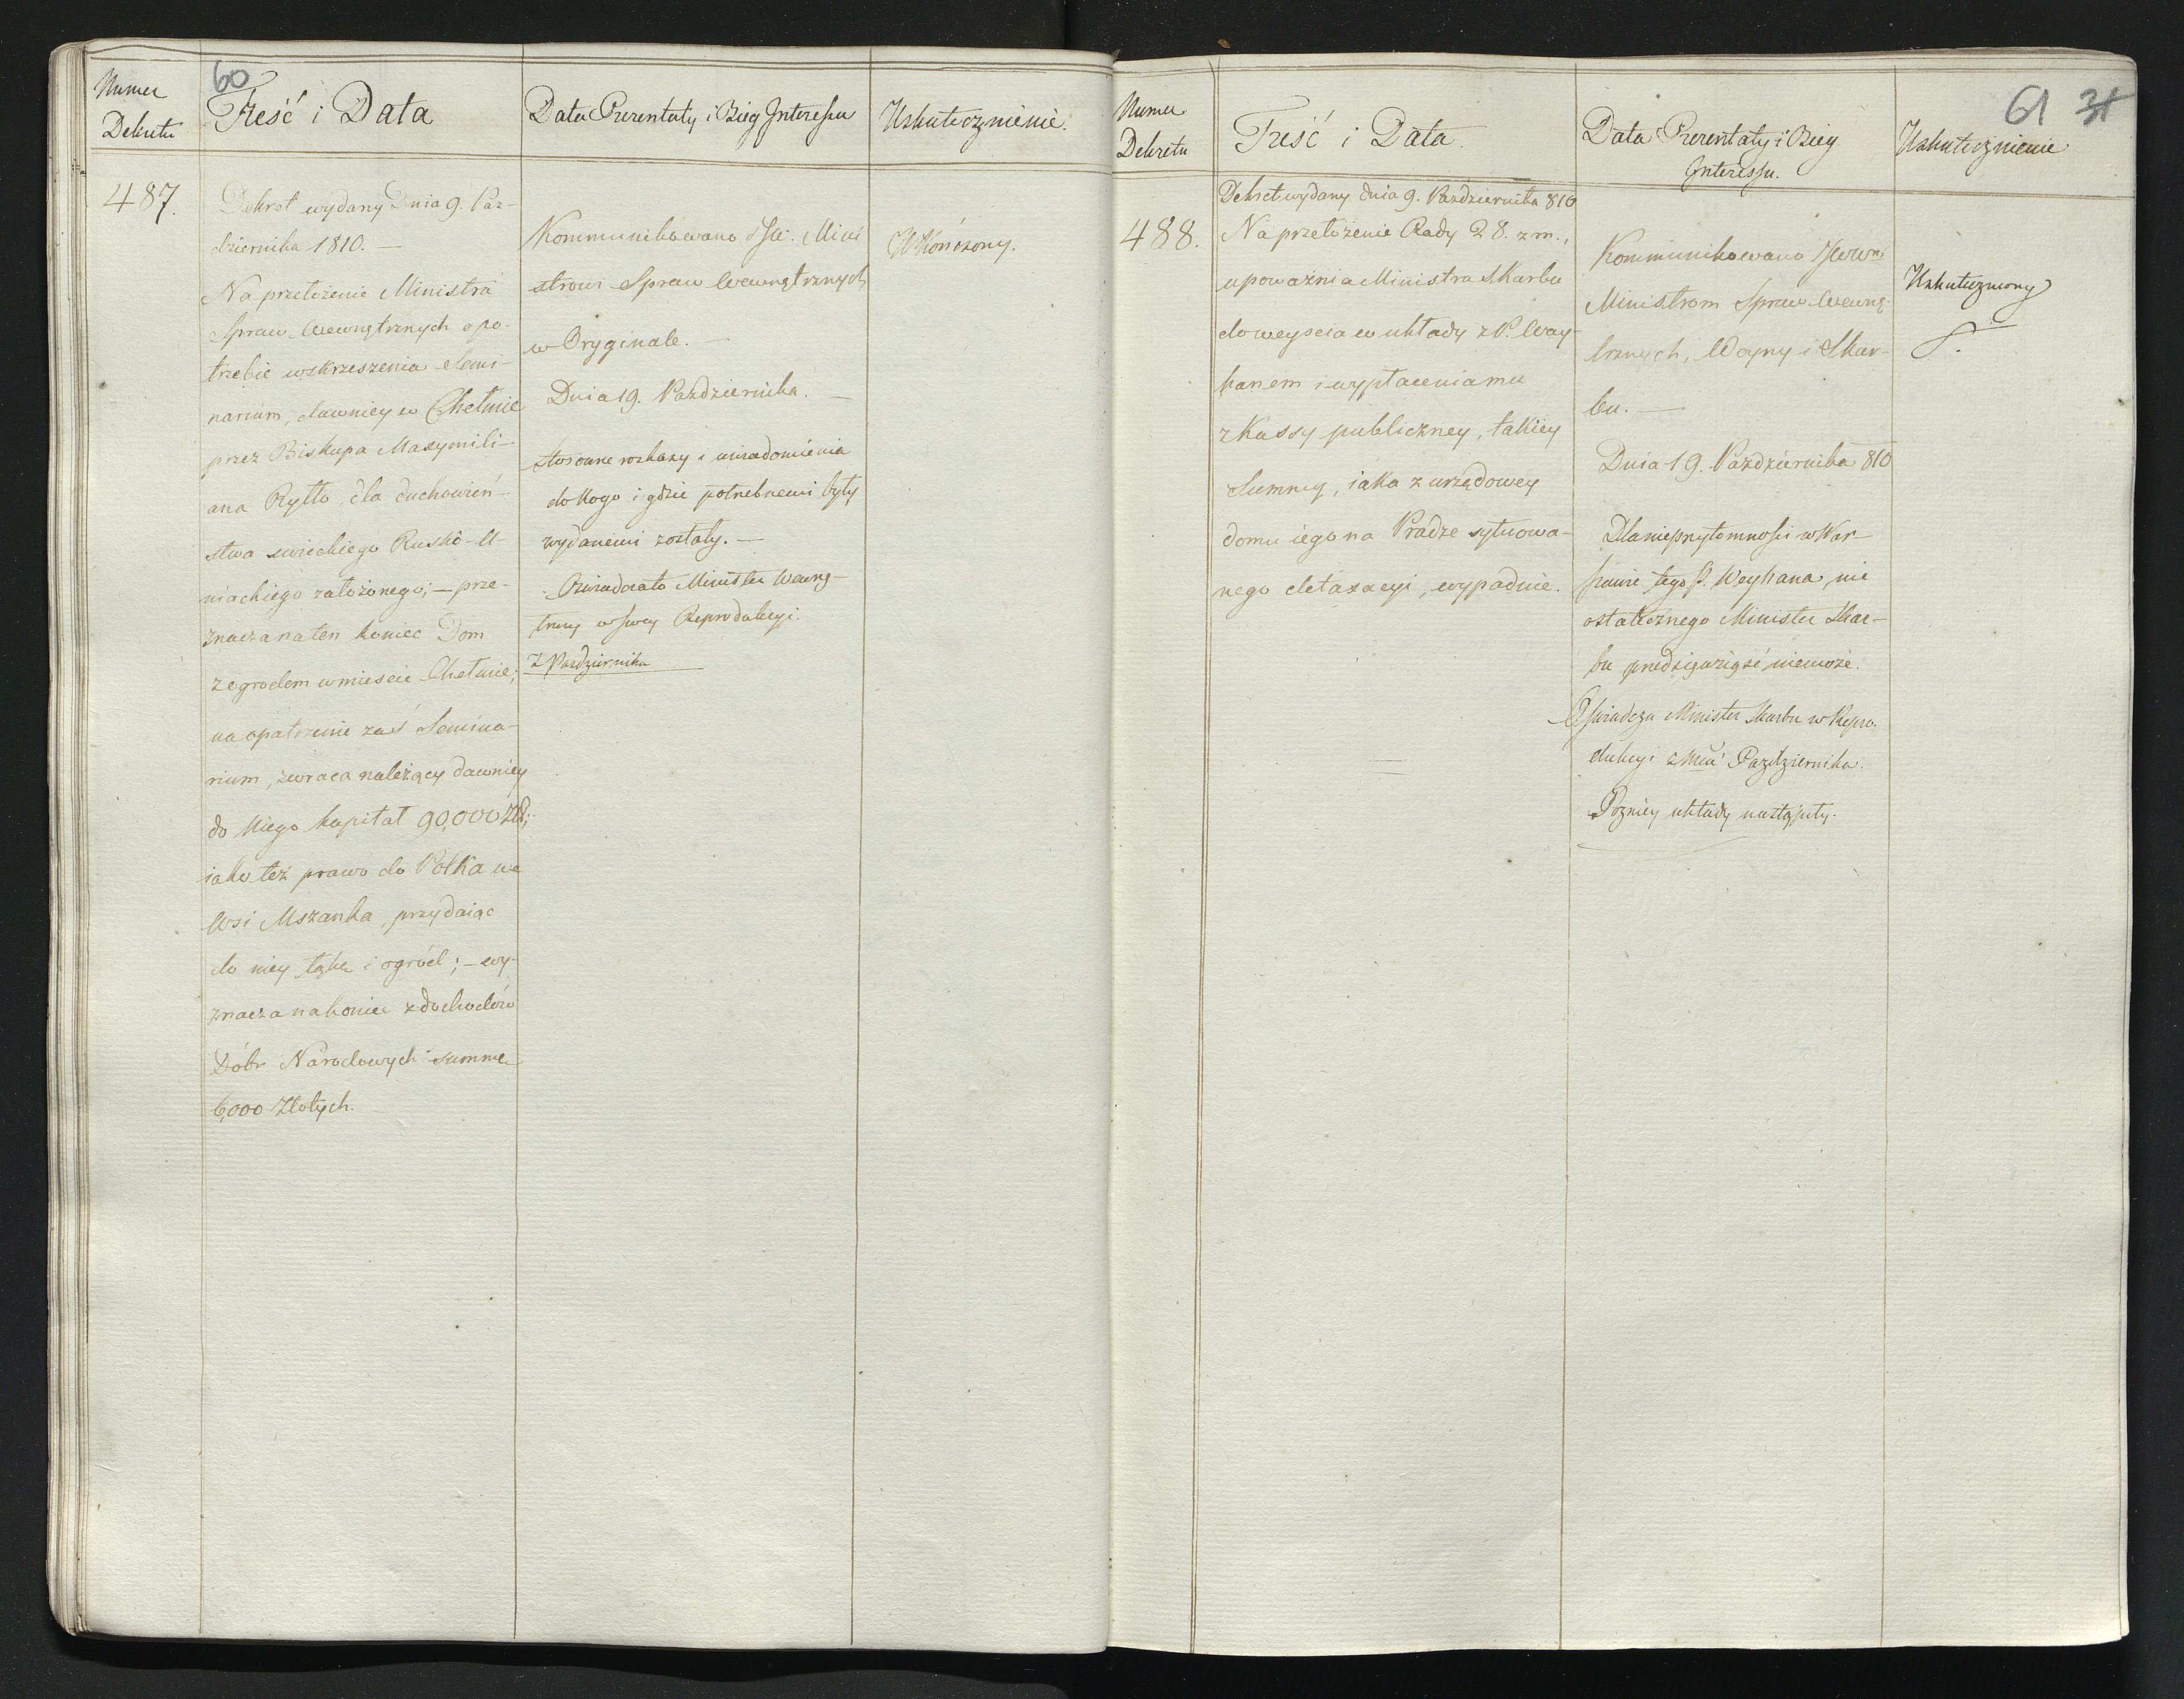 60
Numer
Dekretu
Treść i Data
Data Prezentaty i Bieg Interessu
Uskutecznienie.
487.
Dekret wydany Dnia 9. Paz-
dziernika 1810. —
Na przełożenie Ministra
Spraw Wewnętrznych o po-
trzebie wskrzeszenia Semi-
narium, dawniey w Chełmie
przez Biskupa Maxymili-
ana Ryłło, dla duchowień-
stwa swieckiego Rusko-U-
niackiego założonego; — prze-
znacza na ten koniec Dom
z ogrodem w miescie Chełmie;
na opatrzenie zaś Semina-
rium, zwraca należący dawniey
do niego kapitał 90,000 Złł;
iako też prawo do Polka we
Wsi Mszanka, przydaiąc
do niey łąkę i ogród; — wy-
znacza na koniec z dochodów
Dóbr Narodowych summę
6,000 Złotych.
Kommunikowano JW. Mini
strowi Spraw Wewnętrznych
w Oryginale. —
Dnia 19. Pazdziernika. —
stosowne rozkazy i uwiadomienia
do kogo i gdzie potrzebnemi były
wydanemi zostały. —
Oświadczało Minister Wewnę-
trzny w swey Reprodukcyi.
Z Pazdziernika
Ukończony.
61 31
Numer
Dekretu
Treść i Data.
Data Prezentaty i Bieg
Interessu.
Uskutecznienie
488.
Dekret wydany dnia 9. Pazdziernika 810
Na przełożenie Rady 28. z m.,
upoważnia Ministra Skarbu
do weyscia w układy z P. Way-
hanem i wypłacenia mu
z Kassy publiczney, takiey
Summy, iaka z urzędowey
domu iego na Pradze sytuowa-
nego detaxacyi, wypadnie.
Kommunikowano JWWm
Ministrom Spraw Wewnę-
trznych, Woyny i Skar-
bu. —
Dnia 19. Pazdziernika 810
Dla nieprzytomności w War-
szawie tego P. Weyhana, nie
ostatecznego Minister Skar-
bu przedsięwziąść niemoże.
Oświadcza Minister Skarbu w Repro-
dukcyi z Pazdziernika.
Pozniey układy nastąpiły.
Uskuteczniony